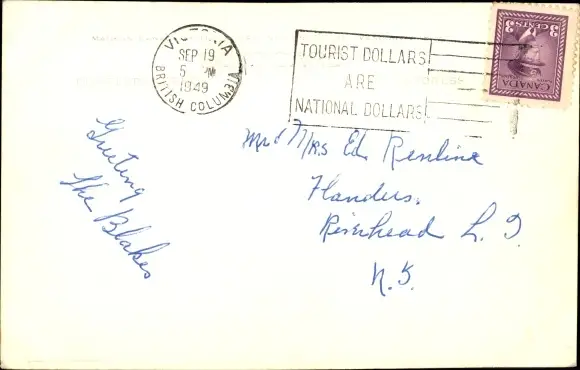 VICTORIA
SEP 19
5 PM
1949
BRITISH COLUMBIA
TOURIST DOLLARS
ARE
NATIONAL DOLLARS
3 CENTS 3
CANADA
Greeting
The Blakes
Mr & Mrs Ed. Renline
Flanders,
Riverhead L. I.
N.Y.